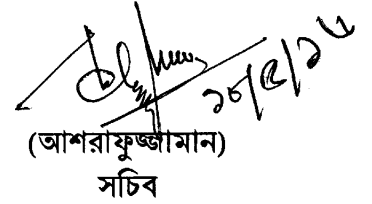 ১৮/৫/১৬
(আশরাফুজ্জামান)
সচিব